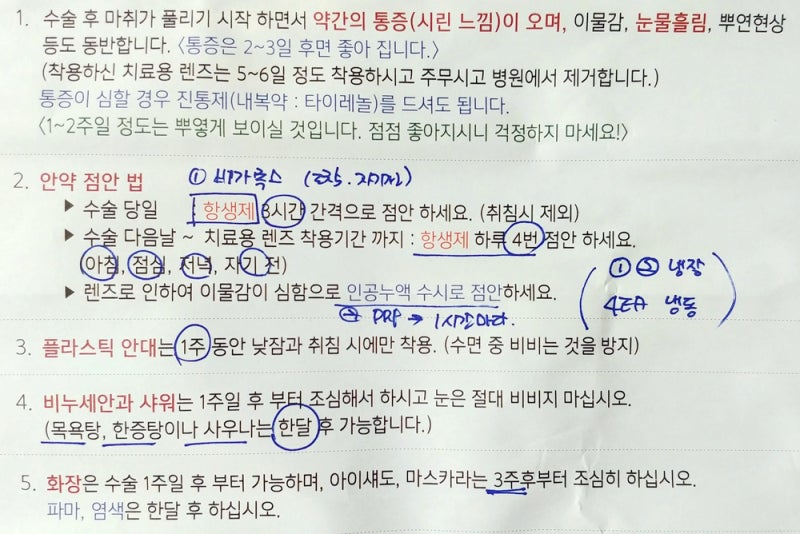 1. 수술 후 마취가 풀리기 시작 하면서 약간의 통증(시린 느낌)이 오며, 이물감, 눈물흘림, 뿌연현상
등도 동반합니다. <통증은 2~3일 후면 좋아 집니다.>
(착용하신 치료용 렌즈는 5~6일 정도 착용하시고 주무시고 병원에서 제거합니다.)
통증이 심할 경우 진통제(내복약 : 타이레놀)를 드셔도 됩니다.
<1~2주일 정도는 뿌옇게 보이실 것입니다. 점점 좋아지시니 걱정하지 마세요!>
2. 안약 점안 법
① 비가목스
▶ 수술 당일 : 항생제 3시간 간격으로 점안 하세요. (취침시 제외)
▶ 수술 다음날 ~ 치료용 렌즈 착용기간 까지 : 항생제 하루 4번 점안 하세요.
(아침, 점심, 저녁, 자기 전)
▶ 렌즈로 인하여 이물감이 심함으로 인공누액 수시로 점안하세요.
② PRP → 1시간마다.
① ② 냉장
4EA 냉동
3. 플라스틱 안대는 1주 동안 낮잠과 취침 시에만 착용. (수면 중 비비는 것을 방지)
4. 비누세안과 샤워는 1주일 후 부터 조심해서 하시고 눈은 절대 비비지 마십시오.
(목욕탕, 한증탕이나 사우나는 한달 후 가능합니다.)
5. 화장은 수술 1주일 후 부터 가능하며, 아이섀도, 마스카라는 3주후부터 조심히 하십시오.
파마, 염색은 한달 후 하십시오.